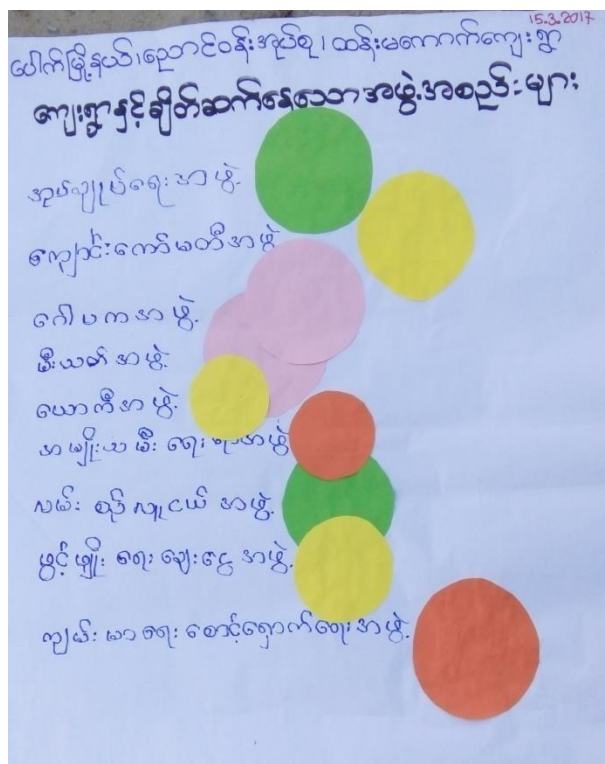 15.3.2017
ပေါက်မြို့နယ်၊ညောင်ဝန်းအုပ်စု၊ထန်းမကောက်ကျေးရွာ
ကျေးရွာနှင့်ချိတ်ဆက်နေသောအဖွဲ့အစည်းများ
အုပ်ချုပ်ရေးအဖွဲ့
ကျောင်းကော်မတီအဖွဲ့
ဂေါပကအဖွဲ့
မီးသတ်အဖွဲ့
ယောဂီအဖွဲ့
အမျိုးသမီးရေးရာအဖွဲ့
လမ်းစဉ်လူငယ်အဖွဲ့
ဖွံ့ဖြိုးရေးချေးငွေအဖွဲ့
ကျမ်းမာရေးစောင့်ရှောက်ရေးအဖွဲ့